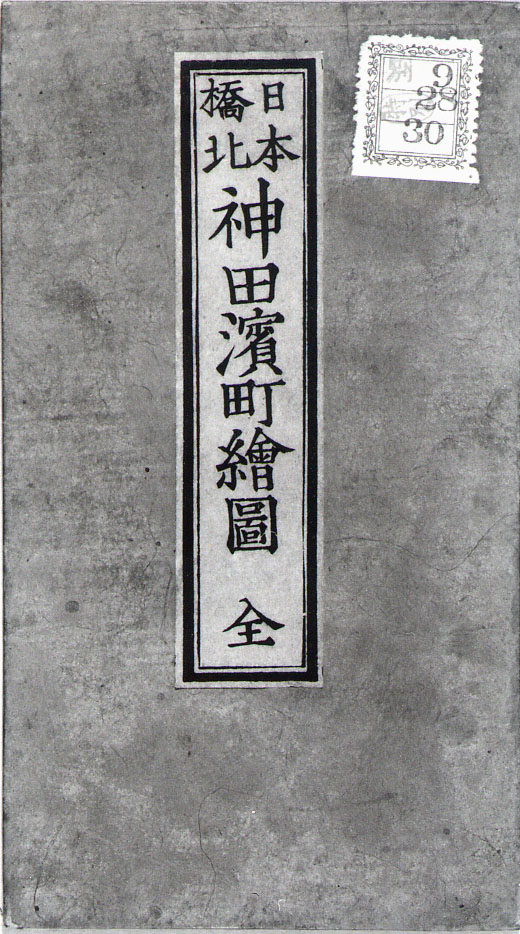 日本
橋北
神田濱町繪圖 全
9
28
30